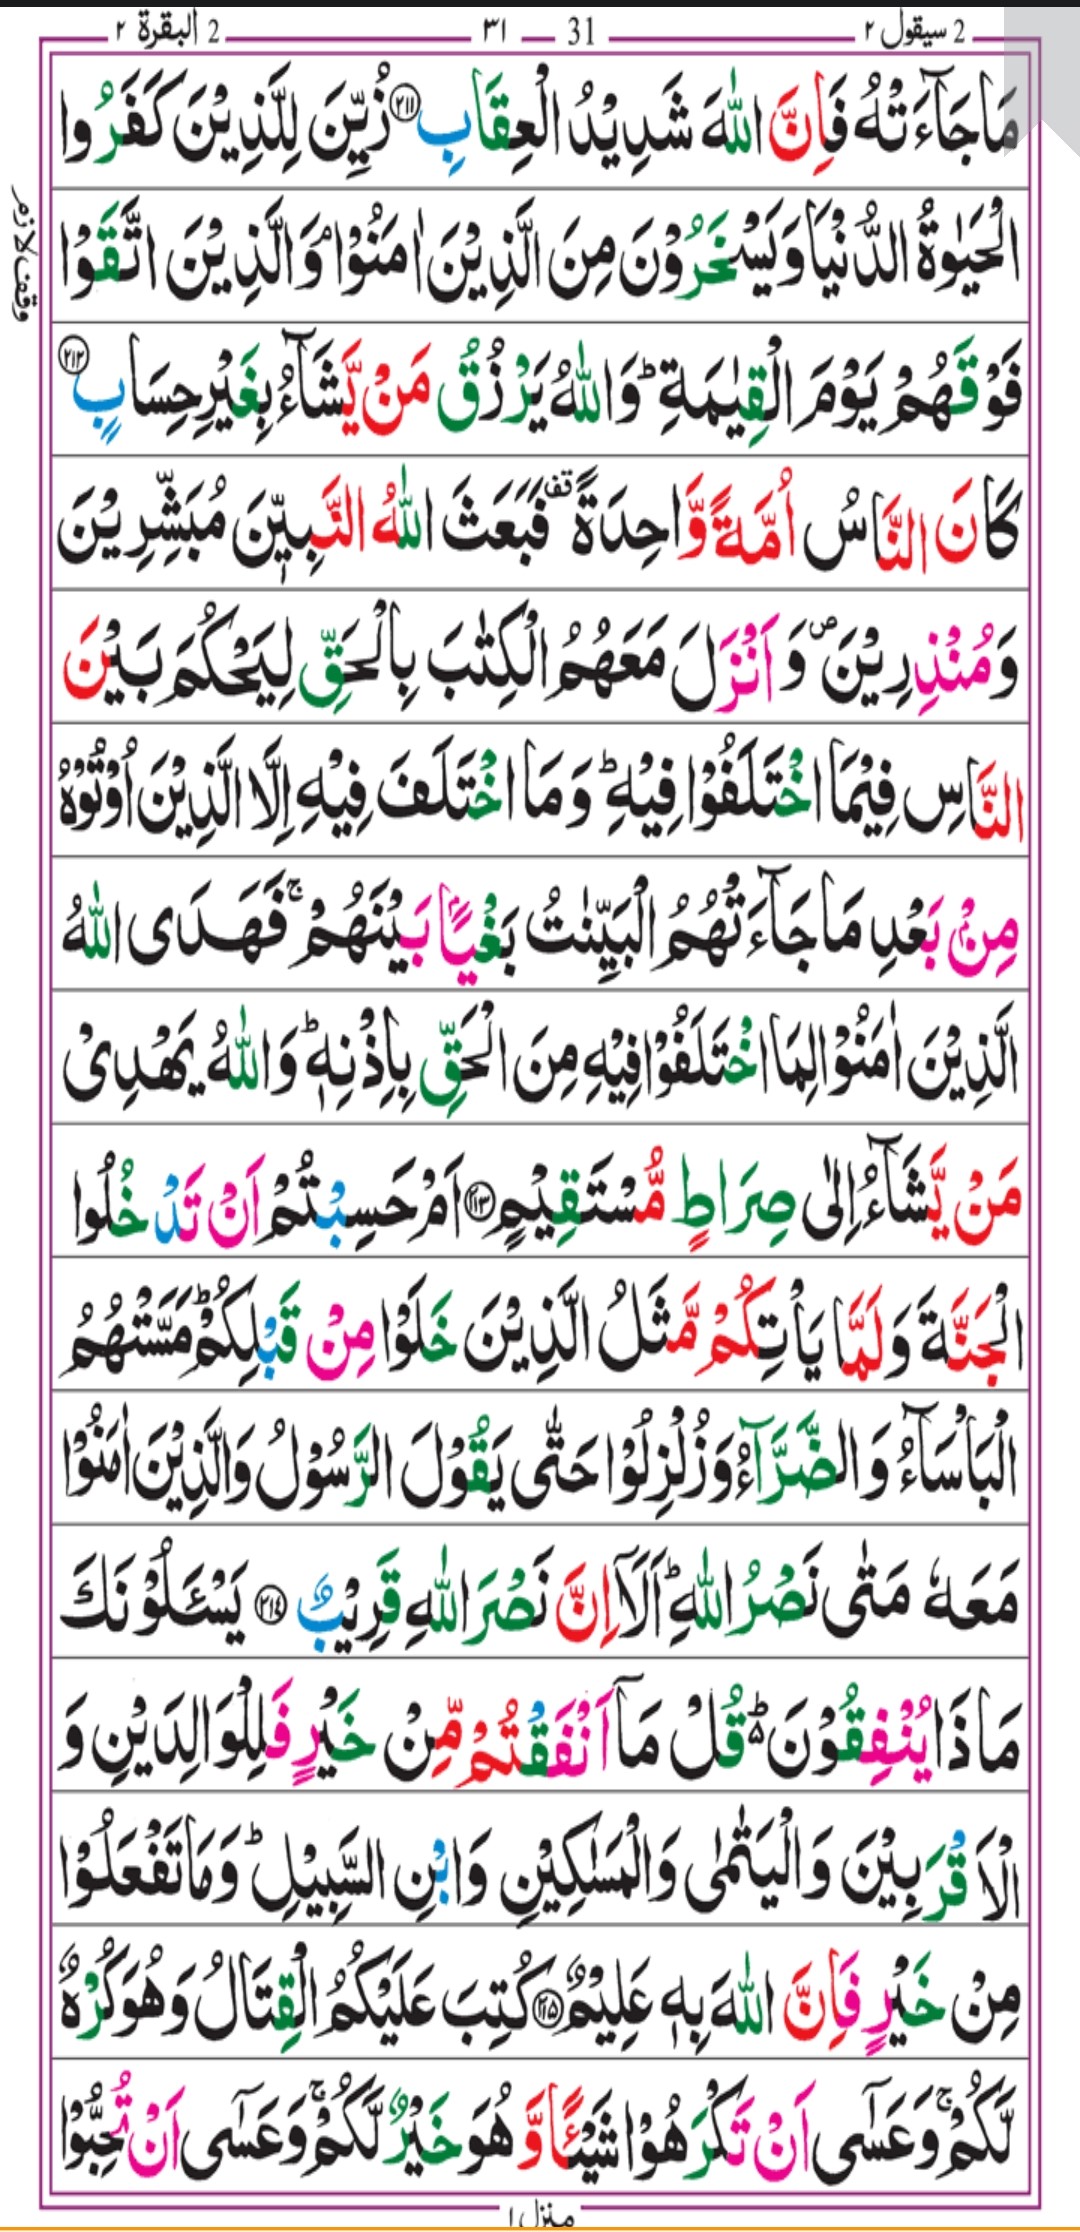 2 سیقول ۲
31 — ۳۱
2 البقرة ۲
مَا جَآءَتْهُ فَاِنَّ اللّٰهَ شَدِيْدُ الْعِقَابِ ﴿۲۱۱﴾ زُيِّنَ لِلَّذِيْنَ كَفَرُوا
الْحَيٰوةُ الدُّنْيَا وَيَسْخَرُوْنَ مِنَ الَّذِيْنَ اٰمَنُوْا ۘ وَالَّذِيْنَ اتَّقَوْا
وقف لازم
فَوْقَهُمْ يَوْمَ الْقِيٰمَةِ ؕ وَاللّٰهُ يَرْزُقُ مَنْ يَّشَآءُ بِغَيْرِ حِسَابٍ ﴿۲۱۲﴾
كَانَ النَّاسُ اُمَّةً وَّاحِدَةً ۫ فَبَعَثَ اللّٰهُ النَّبِيّٖنَ مُبَشِّرِيْنَ
وَمُنْذِرِيْنَ ۪ وَاَنْزَلَ مَعَهُمُ الْكِتٰبَ بِالْحَقِّ لِيَحْكُمَ بَيْنَ
النَّاسِ فِيْمَا اخْتَلَفُوْا فِيْهِ ؕ وَمَا اخْتَلَفَ فِيْهِ اِلَّا الَّذِيْنَ اُوْتُوْهُ
مِنْۢ بَعْدِ مَا جَآءَتْهُمُ الْبَيِّنٰتُ بَغْيًۢا بَيْنَهُمْ ۚ فَهَدَى اللّٰهُ
الَّذِيْنَ اٰمَنُوْا لِمَا اخْتَلَفُوْا فِيْهِ مِنَ الْحَقِّ بِاِذْنِهٖ ؕ وَاللّٰهُ يَهْدِيْ
مَنْ يَّشَآءُ اِلٰى صِرَاطٍ مُّسْتَقِيْمٍ ﴿۲۱۳﴾ اَمْ حَسِبْتُمْ اَنْ تَدْخُلُوا
الْجَنَّةَ وَلَمَّا يَاْتِكُمْ مَّثَلُ الَّذِيْنَ خَلَوْا مِنْ قَبْلِكُمْ ؕ مَسَّتْهُمُ
الْبَاْسَآءُ وَالضَّرَّآءُ وَزُلْزِلُوْا حَتّٰى يَقُوْلَ الرَّسُوْلُ وَالَّذِيْنَ اٰمَنُوْا
مَعَهٗ مَتٰى نَصْرُ اللّٰهِ ؕ اَلَآ اِنَّ نَصْرَ اللّٰهِ قَرِيْبٌ ﴿۲۱۴﴾ يَسْـَٔلُوْنَكَ
مَاذَا يُنْفِقُوْنَ ؕ قُلْ مَآ اَنْفَقْتُمْ مِّنْ خَيْرٍ فَلِلْوَالِدَيْنِ وَ
الْاَقْرَبِيْنَ وَالْيَتٰمٰى وَالْمَسٰكِيْنِ وَابْنِ السَّبِيْلِ ؕ وَمَا تَفْعَلُوْا
مِنْ خَيْرٍ فَاِنَّ اللّٰهَ بِهٖ عَلِيْمٌ ﴿۲۱۵﴾ كُتِبَ عَلَيْكُمُ الْقِتَالُ وَهُوَ كُرْهٌ
لَّكُمْ ۚ وَعَسٰٓى اَنْ تَكْرَهُوْا شَيْـًٔا وَّهُوَ خَيْرٌ لَّكُمْ ۚ وَعَسٰٓى اَنْ تُحِبُّوْا
منزل ۱